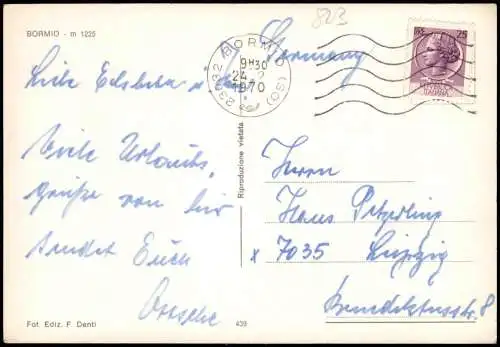 BORMIO - m 1225
823
Germany
23032 BORMIO (SO)
9H30
24 - 2
1970
25
ITALIANA
Liebe
Viele Urlaubs
grüße von hier
sendet Euch
Riproduzione vietata
Herrn
Hans
x 7035 Leipzig
Benediktusstr. 8
Fot. Ediz. F. Danti
439